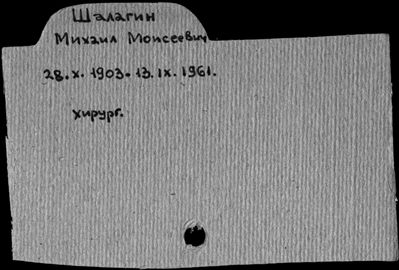 Шалагин
Михаил Моисеевич
28.X.1903-13.IX.1961.
хирург.